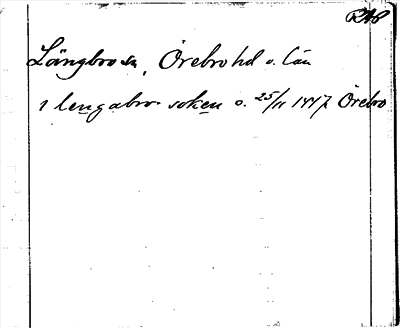 RA8
Längbro sn, Örebro hd o. län
i lengabro soken o. 25/11 1417 Örebro